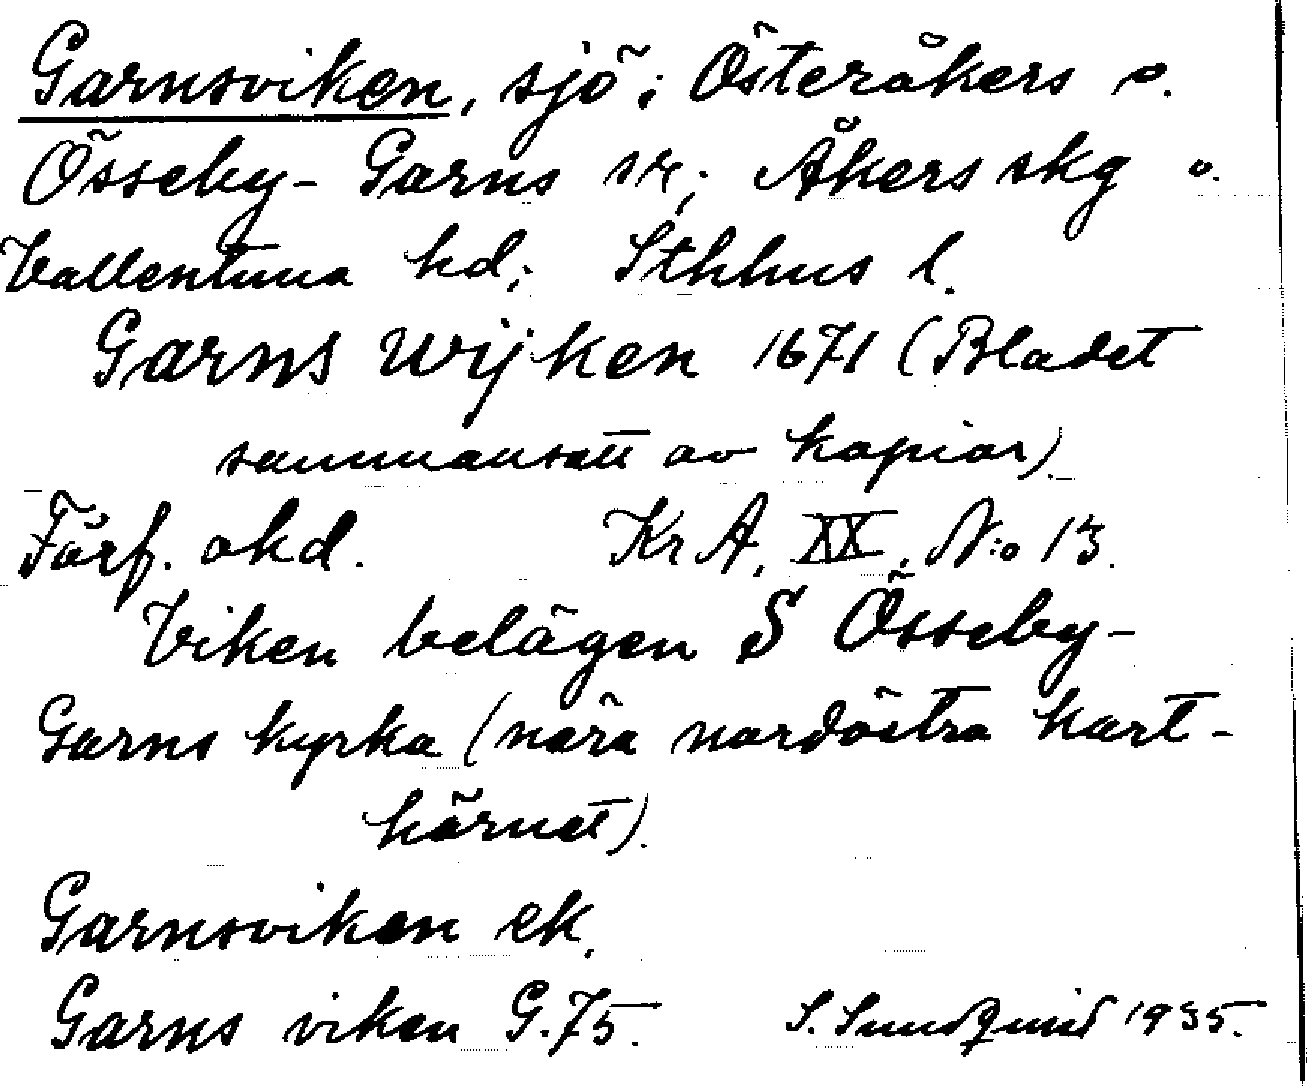 Garnsviken, sjö; Österåkers o.
Össeby-Garns sr; Åkers skg o.
Vallentuna hd; Sthlms l.
Garns Wijken 1671 (Bladet
sammansatt av kopior).
Förf. okd. Kr A, XX, N:o 13.
Viken belägen S Össeby-
Garns kyrka (nära nordöstra kart-
hörnet).
Garnsviken ek.
Garns viken G.75. S. Sundqvist 1935.